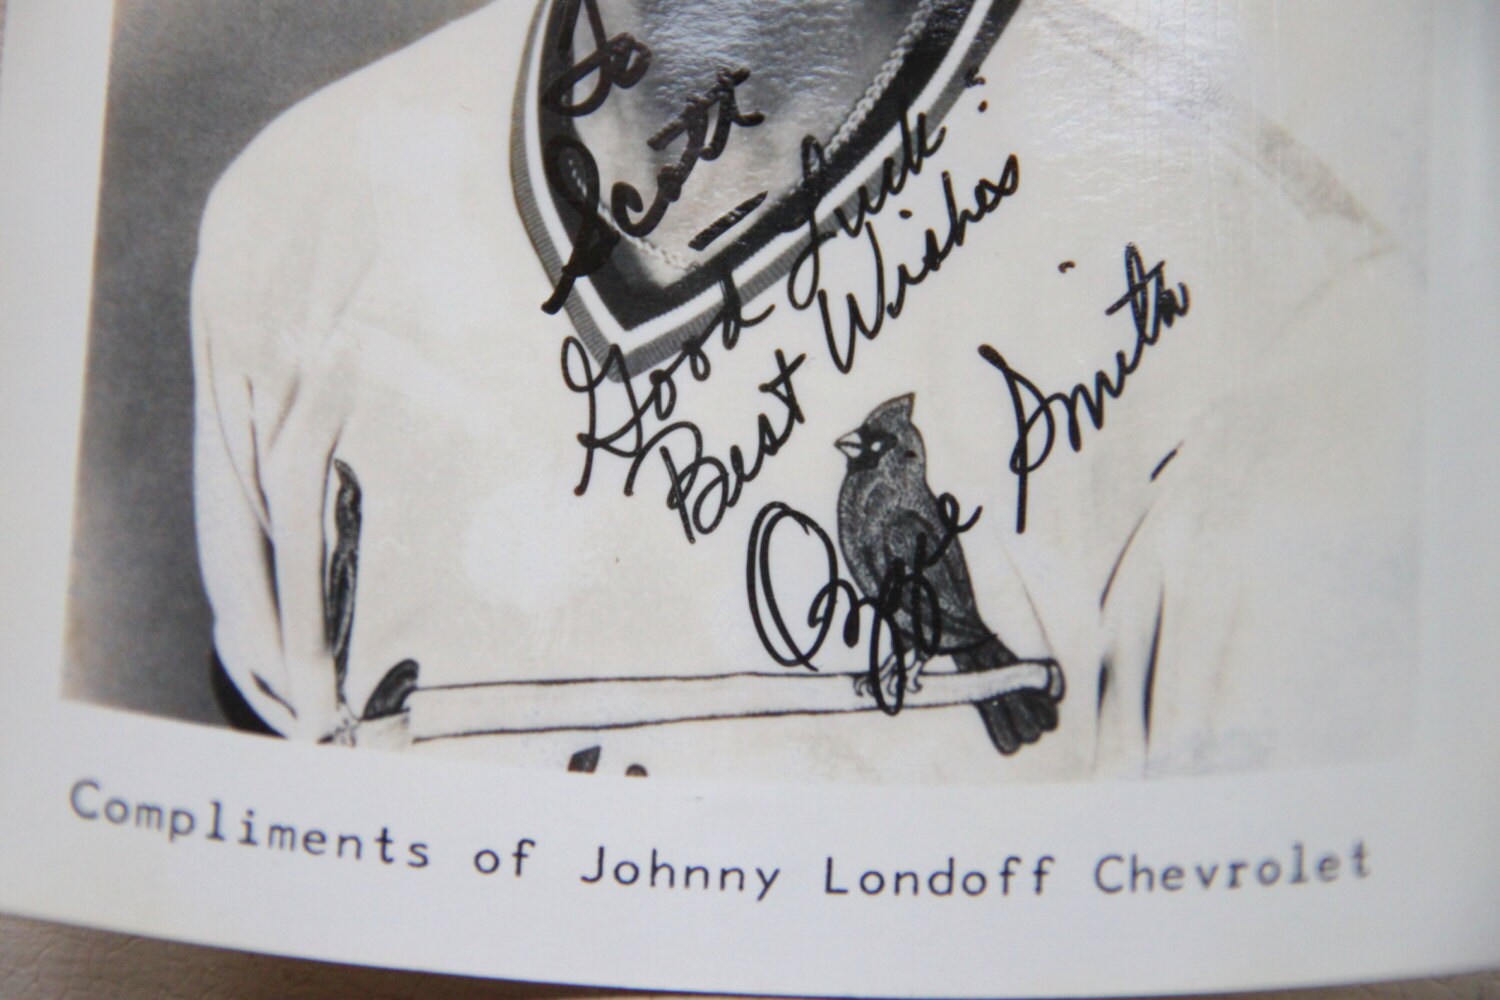 To
Scott —
Good Luck :
Best Wishes
Ozzie Smith
Compliments of Johnny Londoff Chevrolet